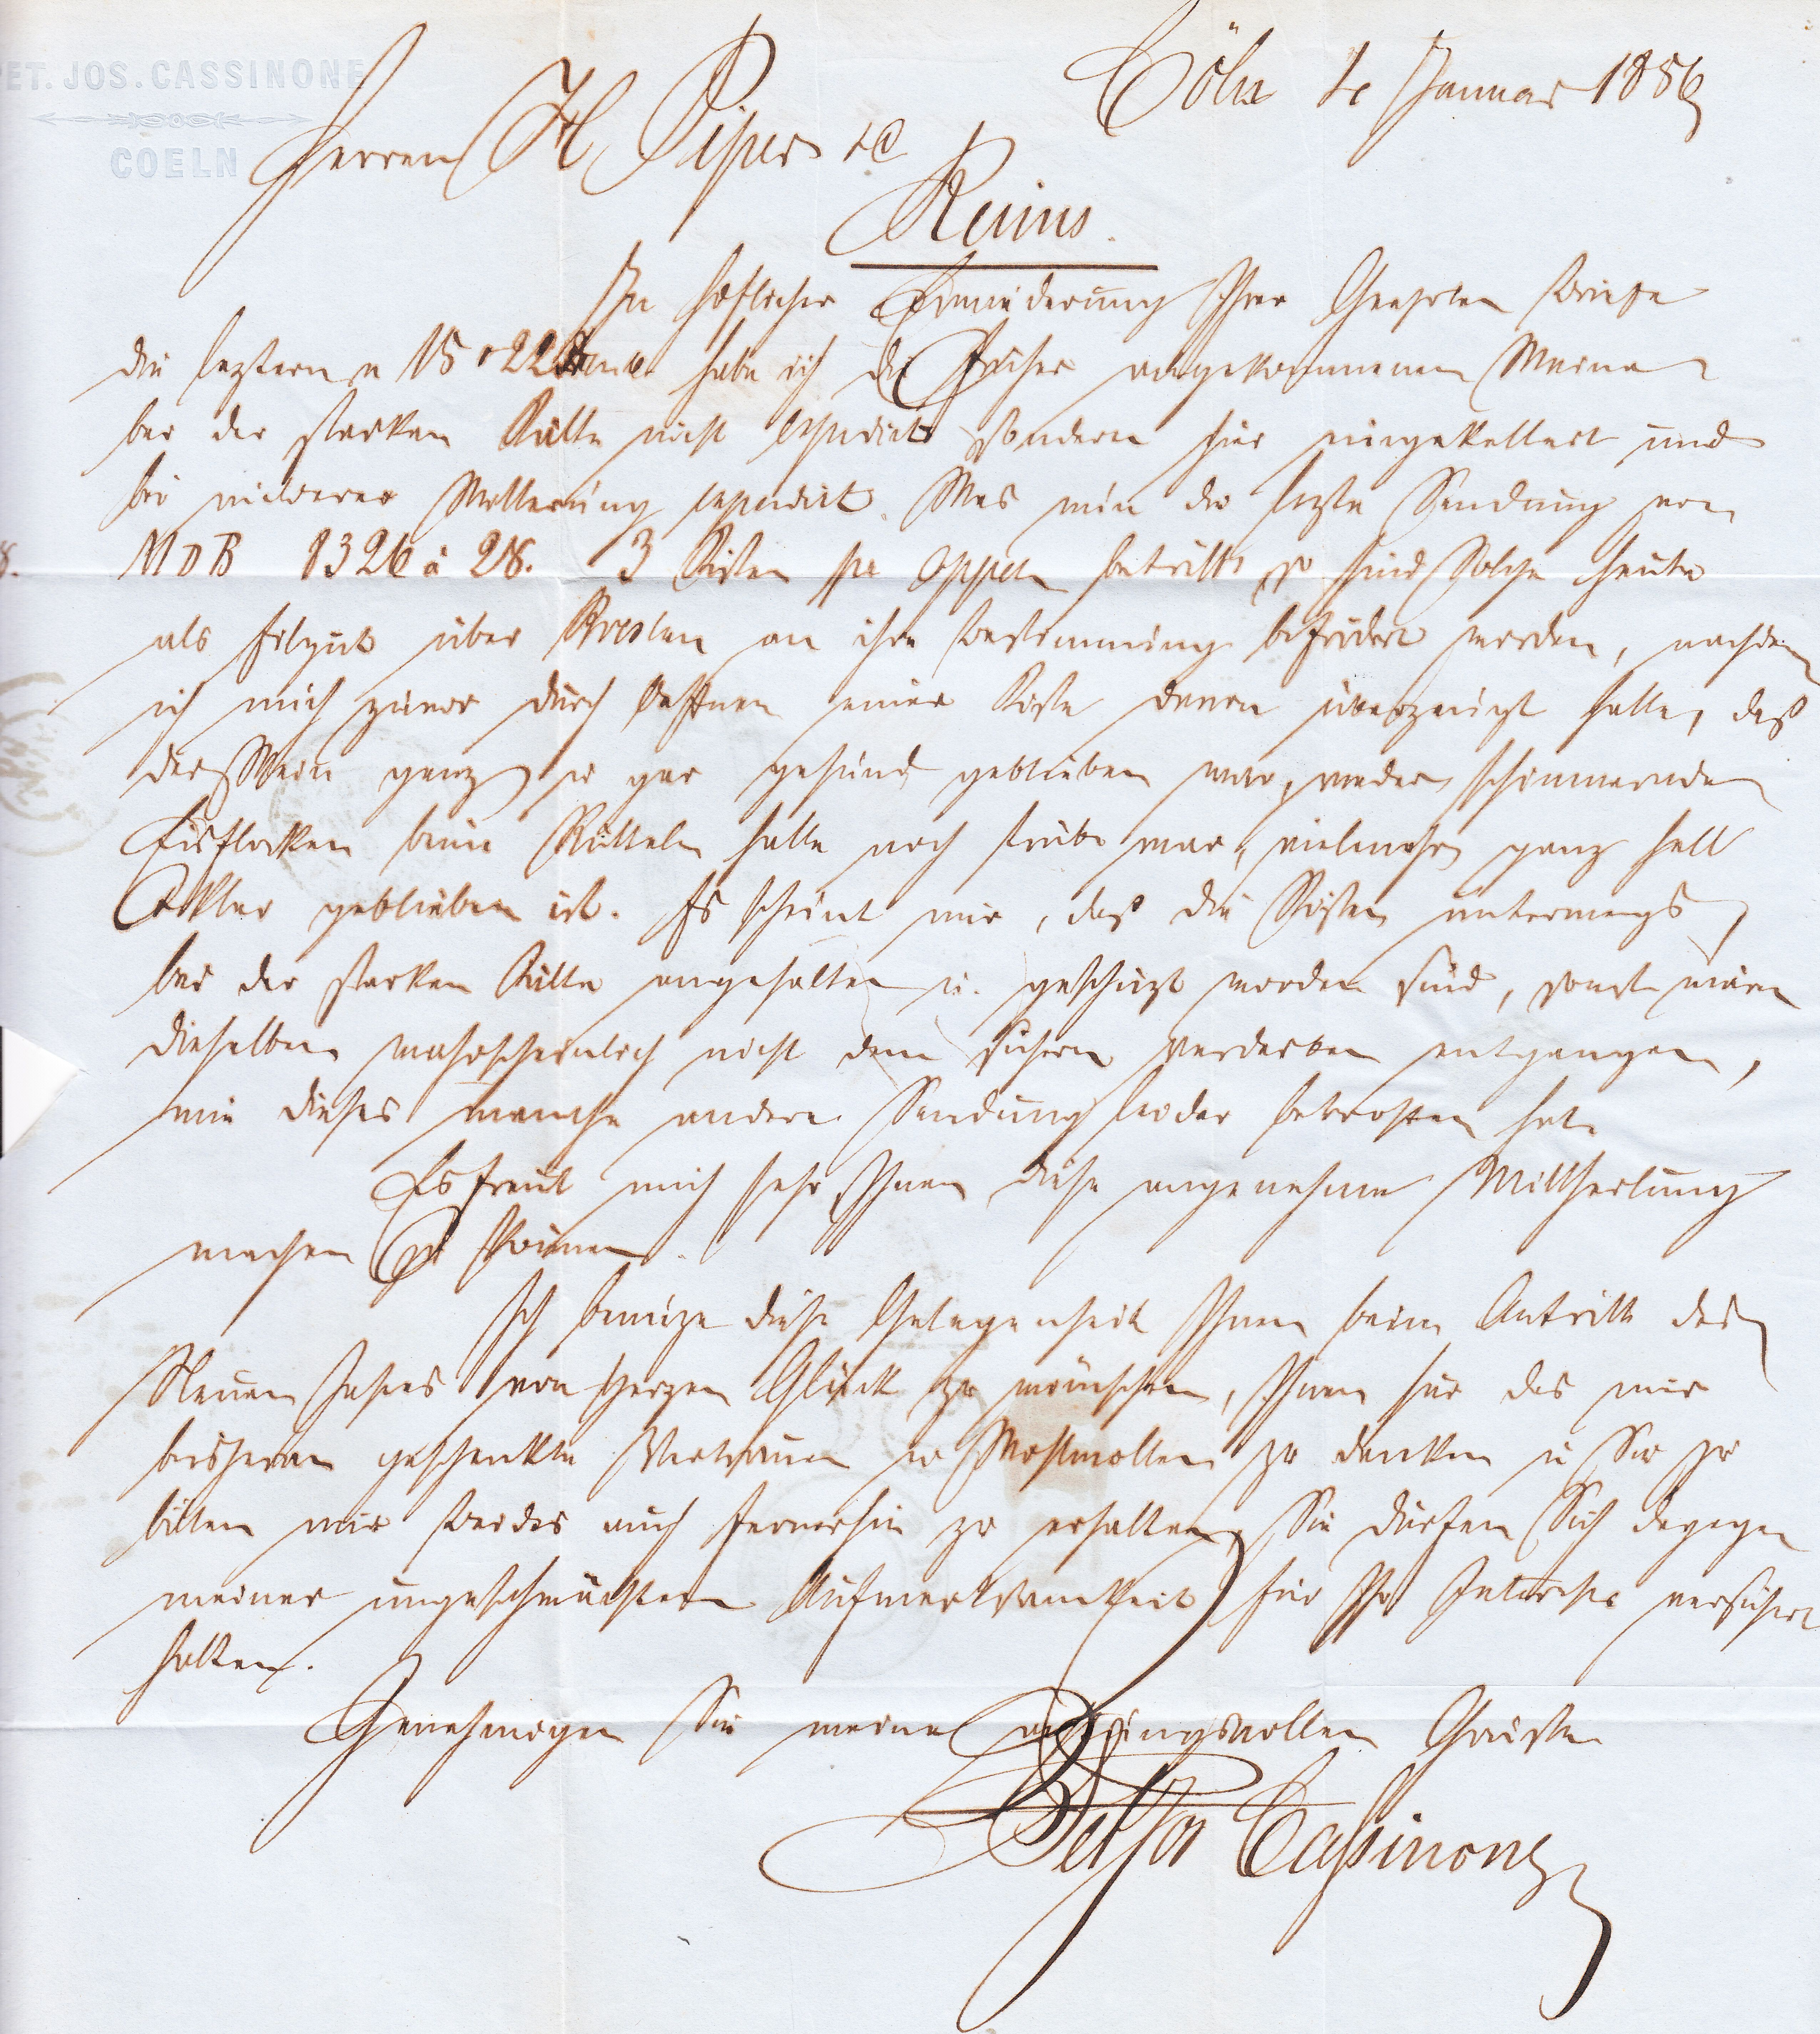 PET. JOS. CASSINONE
COELN
Cöln 4 Januar 1856
Herren H Piper & C
Reims.
In höflicher Erwiederung Ihrer Geehrten Briefe
die leztern v 15 & 22 habe ich die früher angekommenen Weine
bei der starken Kälte nicht expedirt sondern hier eingekellert und
bei milderer Witterung expedirt. Was nun die lezte Sendung von
MDB 8326 à 28. 3 Kisten pr betrifft, so sind solche heute
als Eilgut über Breslau an ihre Bestimmung befördert worden, nachdem
ich mich zuvor durch Oeffnen einer Kiste davon überzeugt hatte, daß
der Wein ganz u gar gesund geblieben war, weder schimmernde
Eisflocken beim Rütteln hatte noch trübe war, vielmehr ganz hell
& klar geblieben ist. Es scheint mir, daß die Kisten unterwegs
bei der starken Kälte angehalten u. geschüzt worden sind, sonst wären
dieselben wahrscheinlich nicht dem sichern Verderben entgangen,
wie dieses manche andere Sendung leider betroffen hat.
Es freut mich sehr Ihnen diese angenehme Mittheilung
machen zu können.
Ich benüze diese Gelegenheit Ihnen beim Antritt des
Neuen Jahres von Herzen Glück zu wünschen, Ihnen für das mir
bisheran geschenkte Vertrauen u Wohlwollen zu danken u Sie zu
bitten mir beides auch fernerhin zu erhalten, Sie dürfen Sich dagegen
meiner ungeschwächten Aufmerksamkeit für Ihr Interesse versichert
halten.
Genehmigen Sie meine achtungsvollen Grüße
Pet Jos Cassinone